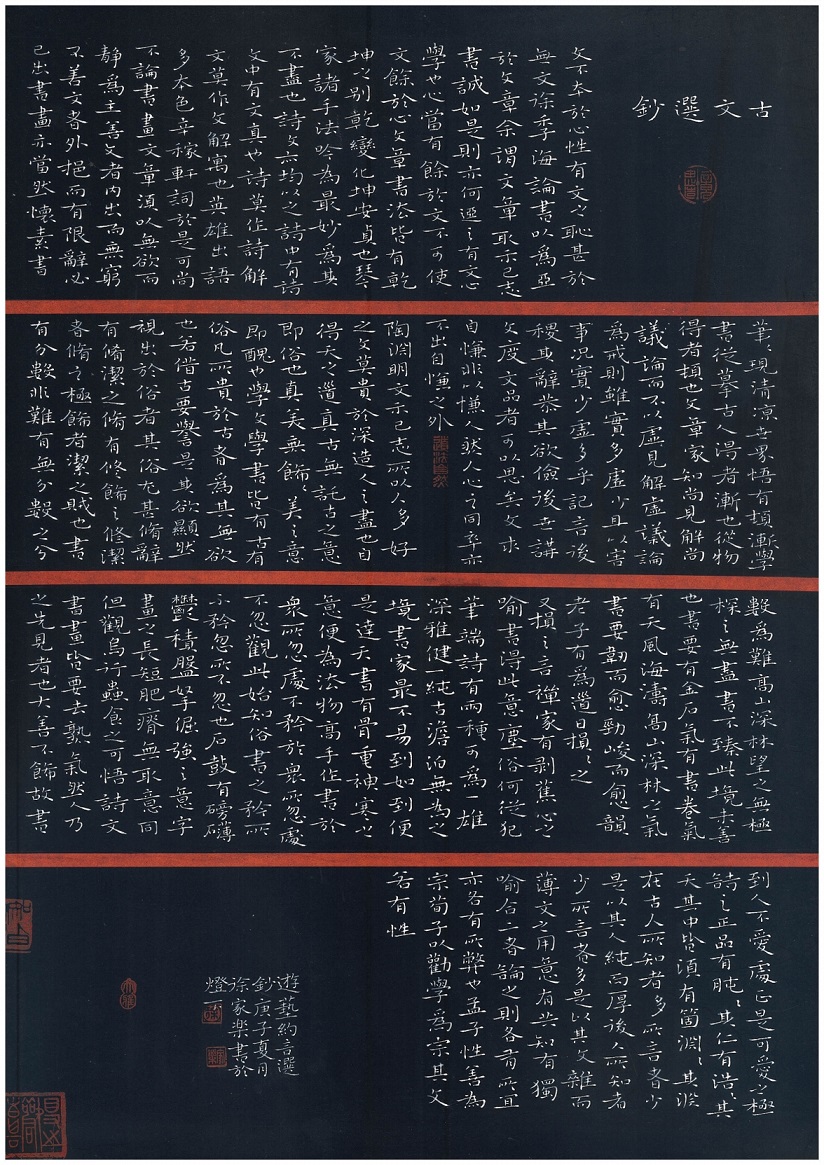 古文選鈔
文不本於心性有文之恥甚於
無文徐季海論書以為亞
於文章余謂文章取示己志
書誠如是則亦何遜之有文心
學也心當有餘於文不可使
文餘於心文章書法皆有乾
坤之別乾變化坤安貞也琴
家諸手法吟為最妙為其
不盡也詩文亦均以之詩中有詩
文中有文真也詩莫作詩解
文莫作文解寓也英雄出語
多本色辛稼軒詞於是可尚
不論書畫文章須以無欲而
靜為主善文者內出而無窮
不善文者外挹而有限辭必
己出書畫亦當然懷素書
筆筆現清涼世界悟有頓漸學
書從摹古人得者漸也從物
得者頓也文章家知尚見解尚
議論而不以虛見解虛議論
為戒則雖實多虛少且以害
事況實少虛多乎記言後
稷其辭恭其欲儉後世講
文度文品者可以思矣文求
自慊非以慊人然人心之同卒亦
不出自慊之外
陶淵明文示己志所以人多好
之文莫貴於深造人之盡也自
得天之道真古無託古之意
即俗也真美無飾美之意
即醜也學文學書皆有古有
俗凡所貴於古者為其無欲
也若借古要譽是其欲顯然
視出於俗者其俗尤甚脩辭
有脩潔之脩有修飾之修潔
者脩之極飾者潔之賊也書
有分數非難有無分數之分
數為難高山深林望之無極
探之無盡書不臻此境未善
也書要有金石氣有書卷氣
有天風海濤高山深林之氣
書要韌而愈勁峻而愈韻
老子有為道日損損之
又損之言禪家有剝蕉心之
喻書得此意塵俗何從犯
筆端詩有兩種可為一雄
深雅健一純古澹泊無為之
境書家最不易到如到便
是達天書有骨重神寒之
意便為法物高手作書於
眾所忽處不矜於眾所忽處
不忽觀此始知俗書之矜所
不矜忽所不忽也石鼓有磅礴
鬱積盤拏倔強之意字
畫之長短肥瘠無取意同
但觀鳥行蟲食之可悟詩文
書畫皆要去熟氣然人乃
之先見者也大善不飾故書
到人不愛處正是可愛之極
詩之正品有肫肫其仁有浩浩其
天其中皆須有箇淵淵其淵
在古人所知者多所言者少
是以其人純而厚後人所知者
少所言者多是以其文雜而
薄文之用意有共知有獨
喻合二者論之則各有所宜
亦各有所弊也孟子性善為
宗荀子以勸學為宗其文
若有性
遊藝約言選
鈔庚子夏月
徐家樂書於
燈下